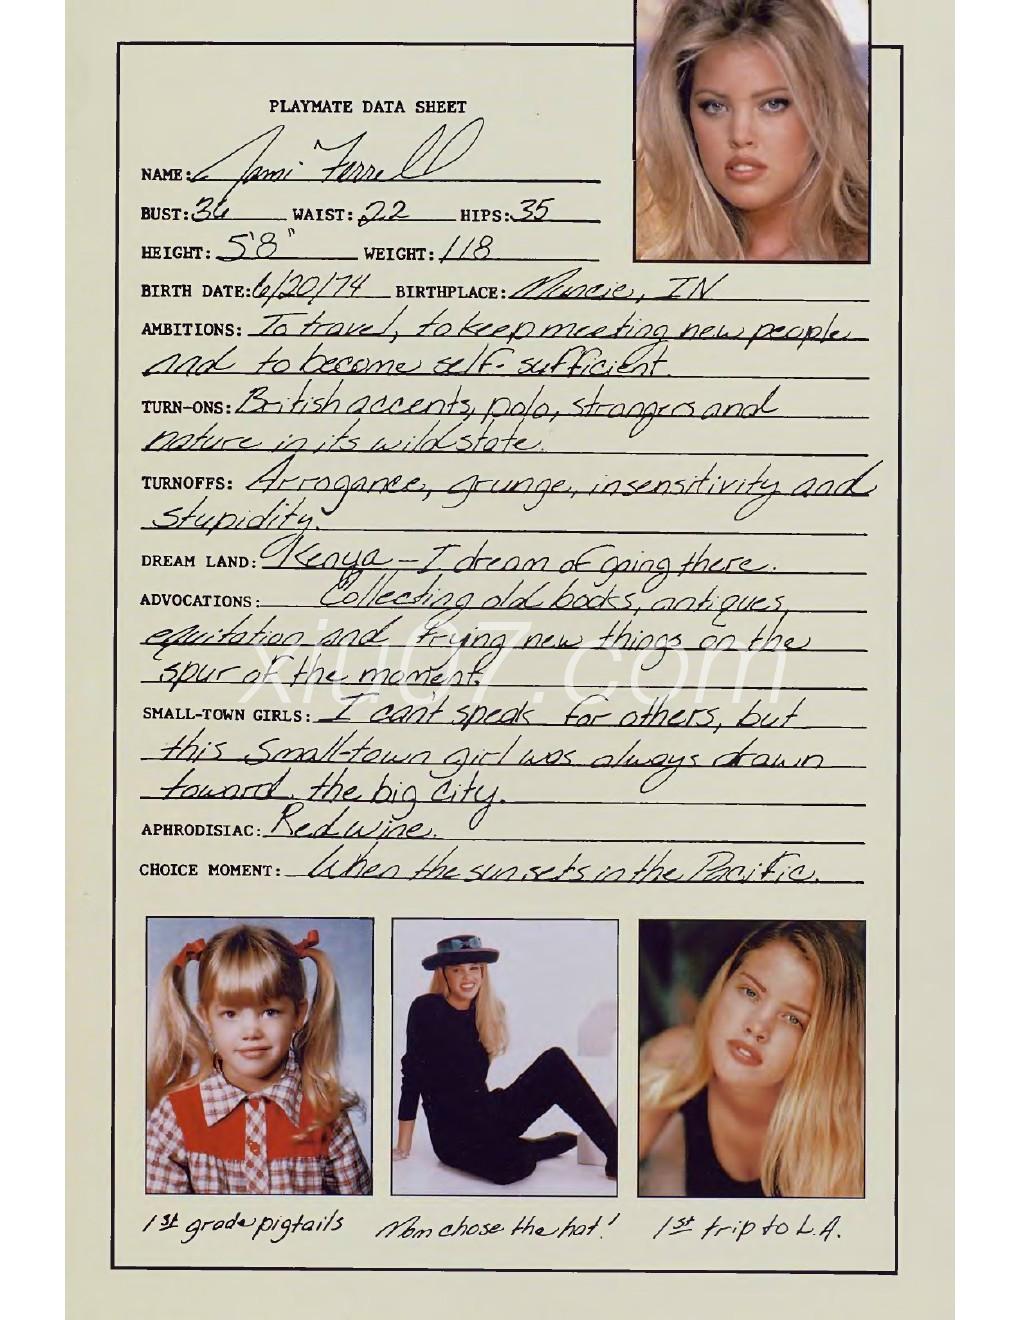 PLAYMATE DATA SHEET
NAME: Jami Ferrell
BUST: 36 WAIST: 22 HIPS: 35
HEIGHT: 5'8" WEIGHT: 118
BIRTH DATE: 6/20/74 BIRTHPLACE: Muncie, IN
AMBITIONS: To travel, to keep meeting new people
and to become self-sufficient.
TURN-ONS: British accents, polo, strangers and
nature in its wild state.
TURNOFFS: Arrogance, grunge, insensitivity and
stupidity.
DREAM LAND: Kenya - I dream of going there.
ADVOCATIONS: Collecting old books, antiques,
equitation and trying new things on the
xiu07.com
spur of the moment.
SMALL-TOWN GIRLS: I can't speak for others, but
this small-town girl was always drawn
toward the big city.
APHRODISIAC: Red wine.
CHOICE MOMENT: When the sun sets in the Pacific.
1st grade pigtails Mom chose the hat! 1st trip to L.A.